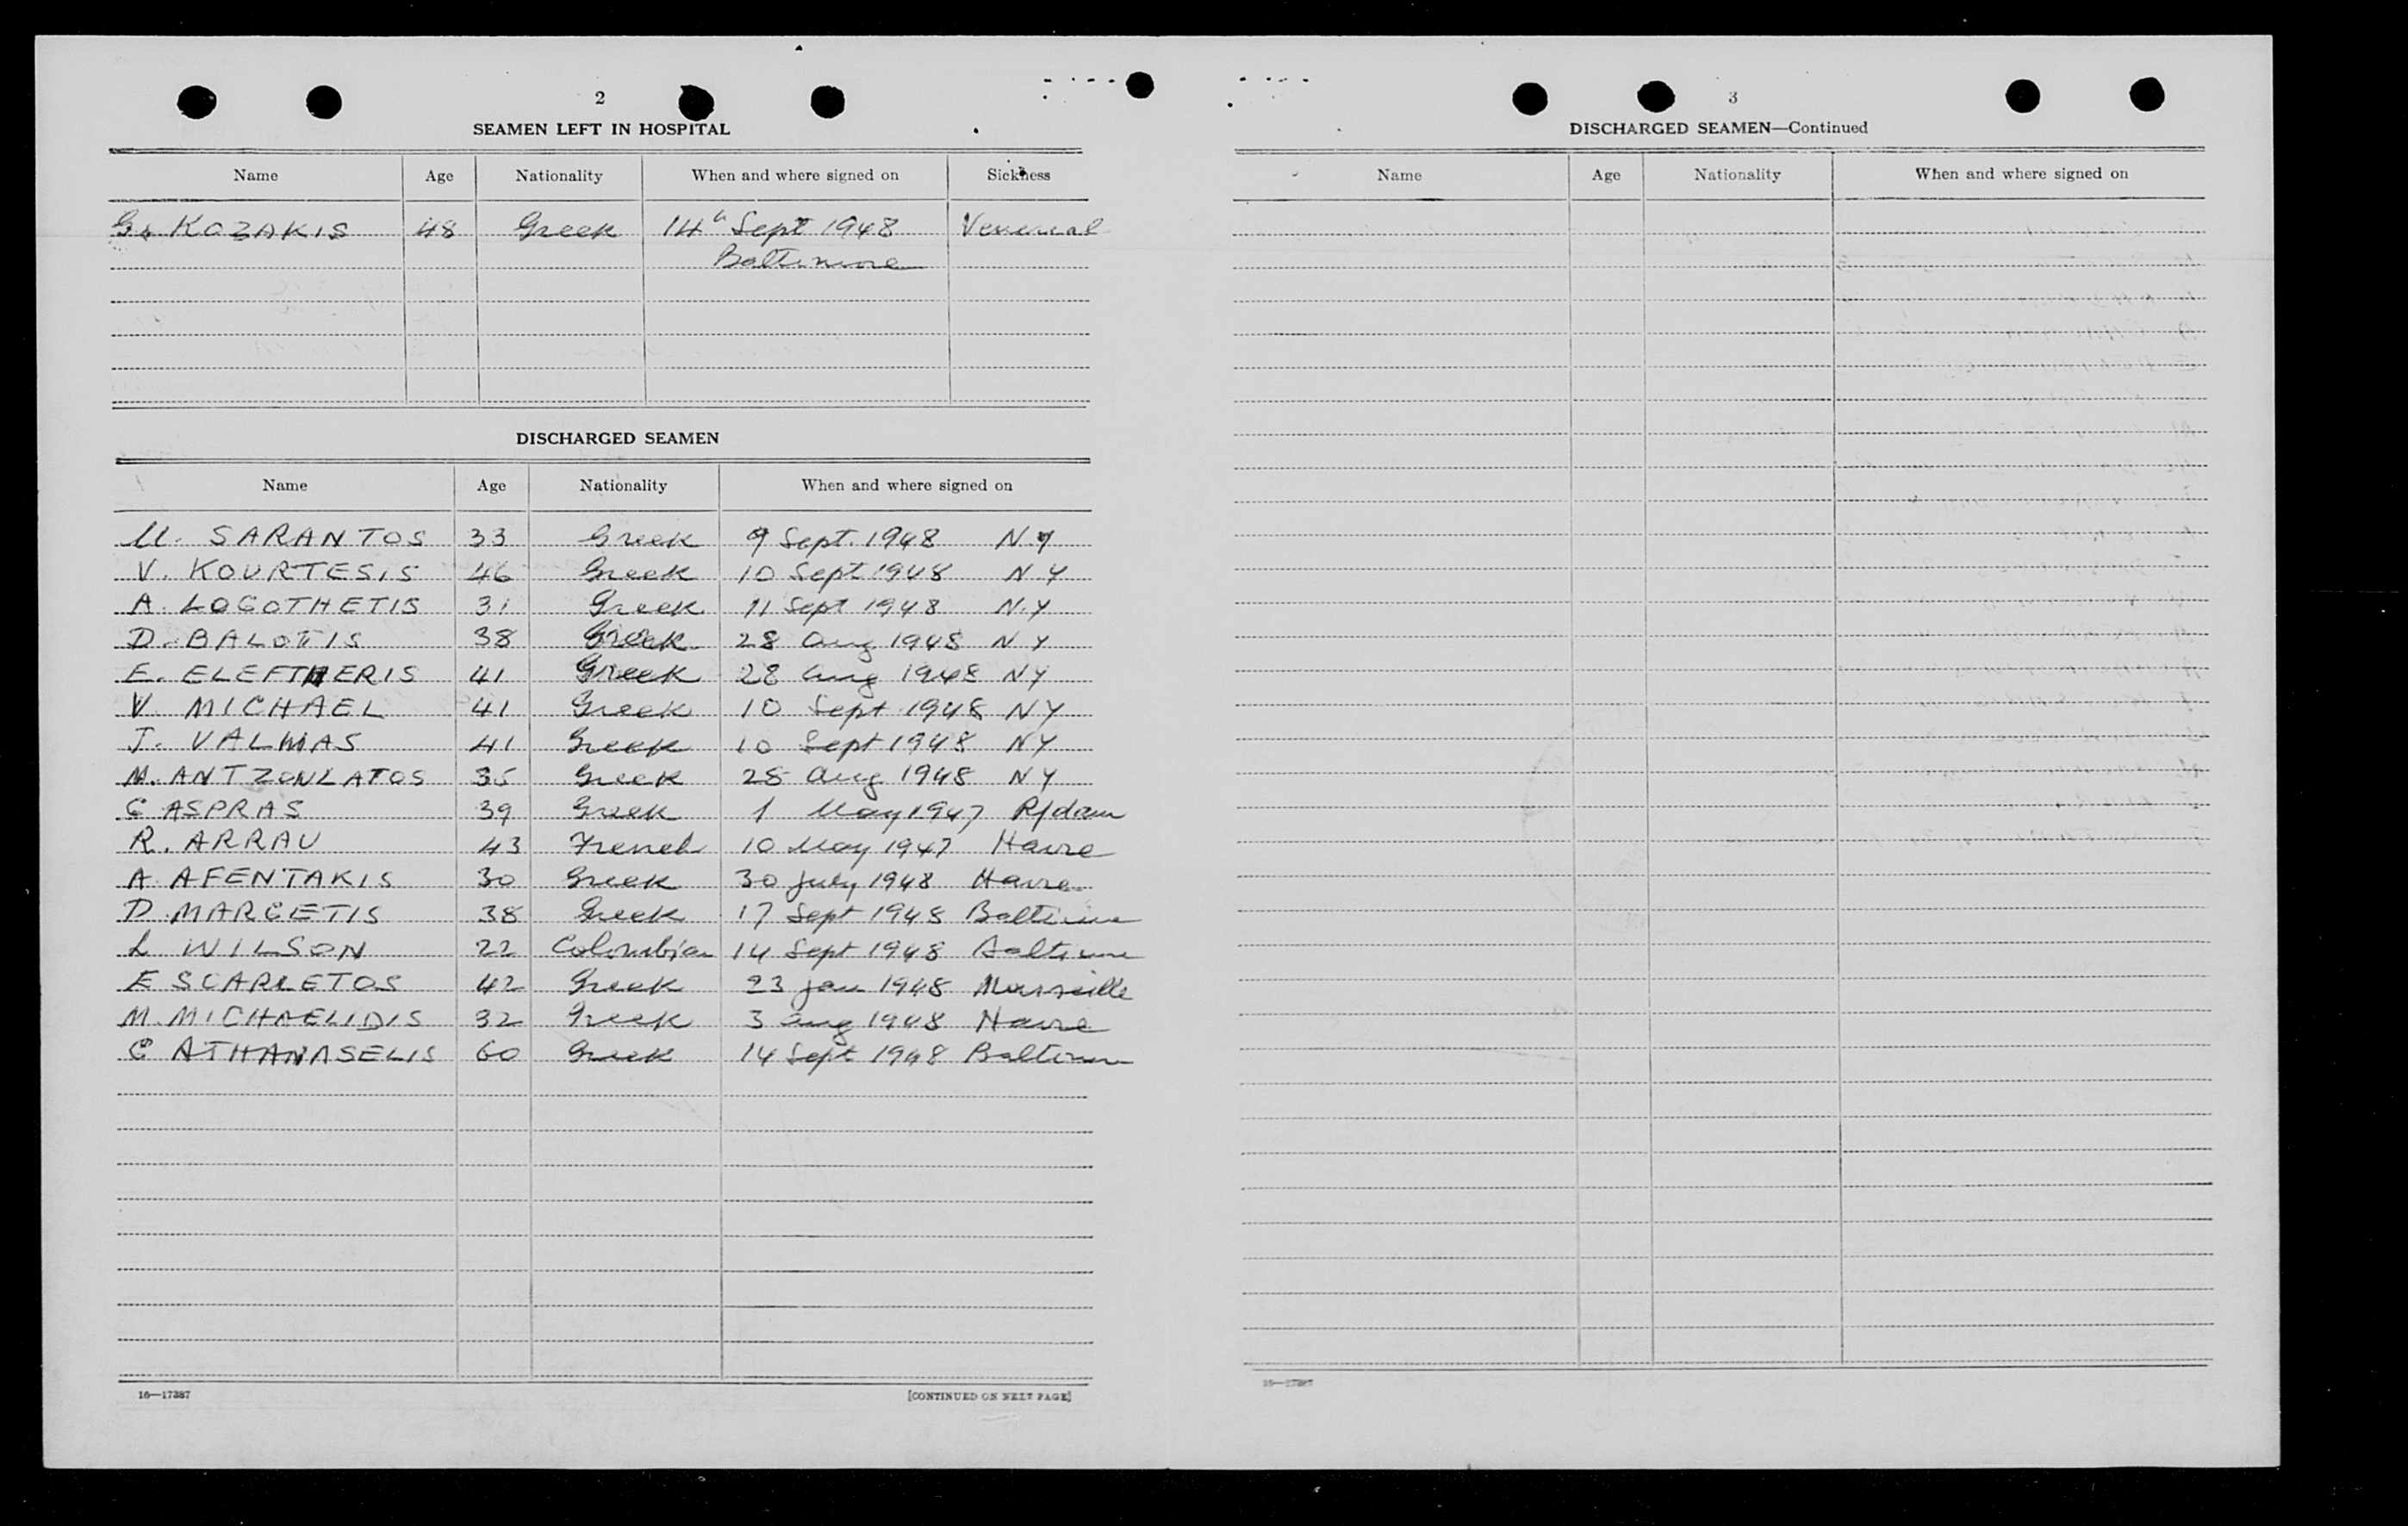 2
SEAMEN LEFT IN HOSPITAL
Name Age Nationality When and where signed on Sickness
G. KOZAKIS 48 Greek 14th Sept 1948 Venereal
Baltimore
DISCHARGED SEAMEN
Name Age Nationality When and where signed on
M. SARANTOS 33 Greek 9 Sept. 1948 N.Y
V. KOURTESIS 46 Greek 10 Sept 1948 N Y
A. LOGOTHETIS 31 Greek 11 Sept 1948 N.Y
D. BALOTIS 38 Greek 28 Aug 1948 N Y
E. ELEFTHERIS 41 Greek 28 Aug 1948 NY
V. MICHAEL 41 Greek 10 Sept 1948 NY
J. VALMAS 41 Greek 10 Sept 1948 NY
M. ANTZOULATOS 35 Greek 28 Aug 1948 NY
C ASPRAS 39 Greek 1 May 1947 R/dam
R. ARRAU 43 French 10 May 1947 Havre
A AFENTAKIS 30 Greek 30 July 1948 Havre
D. MARGETIS 38 Greek 17 Sept 1948 Baltimore
L WILSON 22 Colombian 14 Sept 1948 Baltimore
E SCARLETOS 42 Greek 23 Jan 1948 Marseille
M. MICHAELIDIS 32 Greek 3 Aug 1948 Havre
C ATHANASELIS 60 Greek 14 Sept 1948 Baltimore
16—17387 [CONTINUED ON NEXT PAGE]
3
DISCHARGED SEAMEN—Continued
Name Age Nationality When and where signed on
16—17387